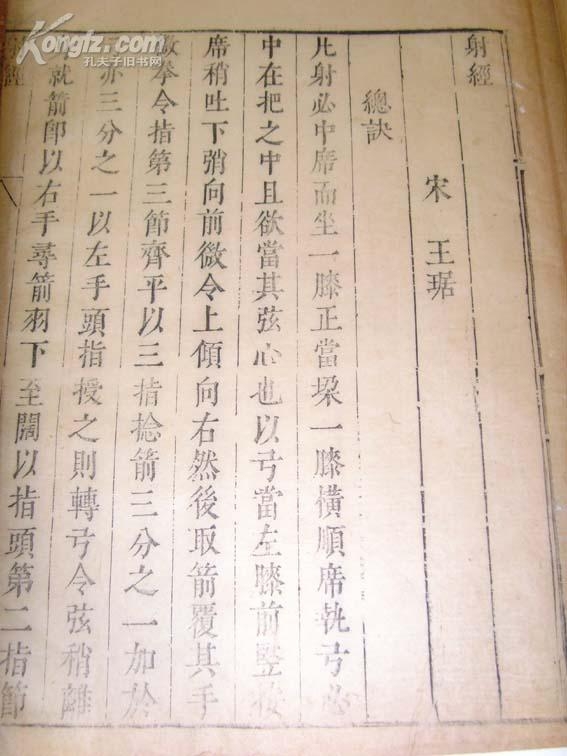 射經
宋 王琚
總訣
凡射必中席而坐一膝正當垜一膝橫順席執弓必
中在把之中且欲當其弦心也以弓當左膝前豎按
席稍吐下弰向前微令上傾向右然後取箭覆其手
微拳令指第三節齊平以三指捻箭三分之一加於
亦三分之一以左手頭指授之則轉弓令弦稍離
就箭卽以右手尋箭羽下至闊以指頭第二指節
經
Kongfz.com
孔夫子旧书网